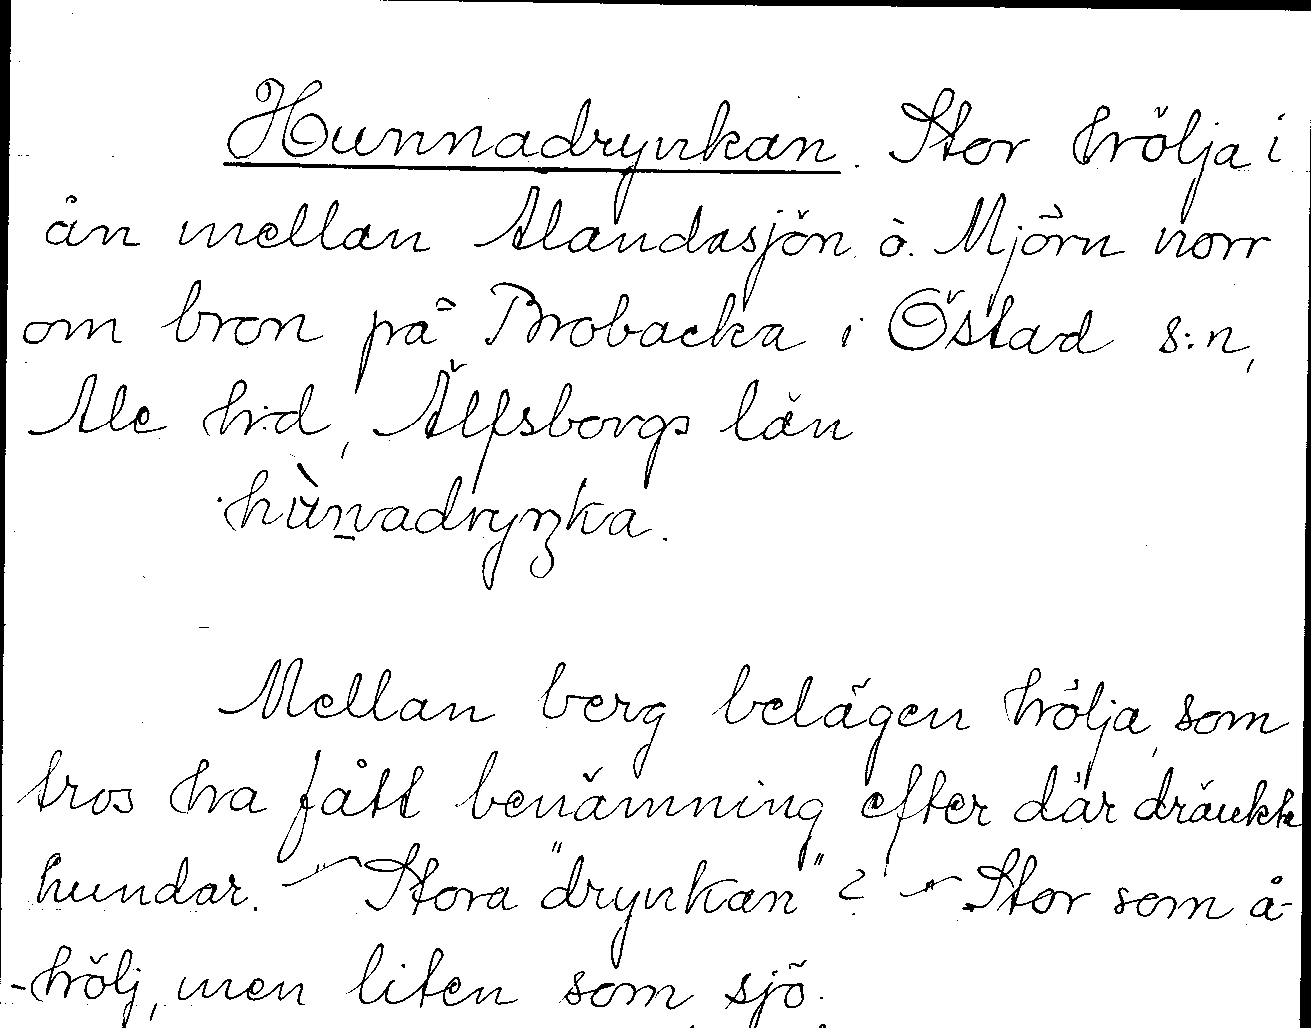 Hunnadrynkan. Stor hölja i
ån mellan Alandasjön o. Mjörn norr
om bron på Brobacka i Östad s:n,
Ale h:d, Älfsborgs län
hùnadryŋka.
Mellan berg belägen hölja, som
tros ha fått benämning efter där dränkta
hundar. — Stora "drynkan"? — Stor som å-
-hölj, men liten som sjö.